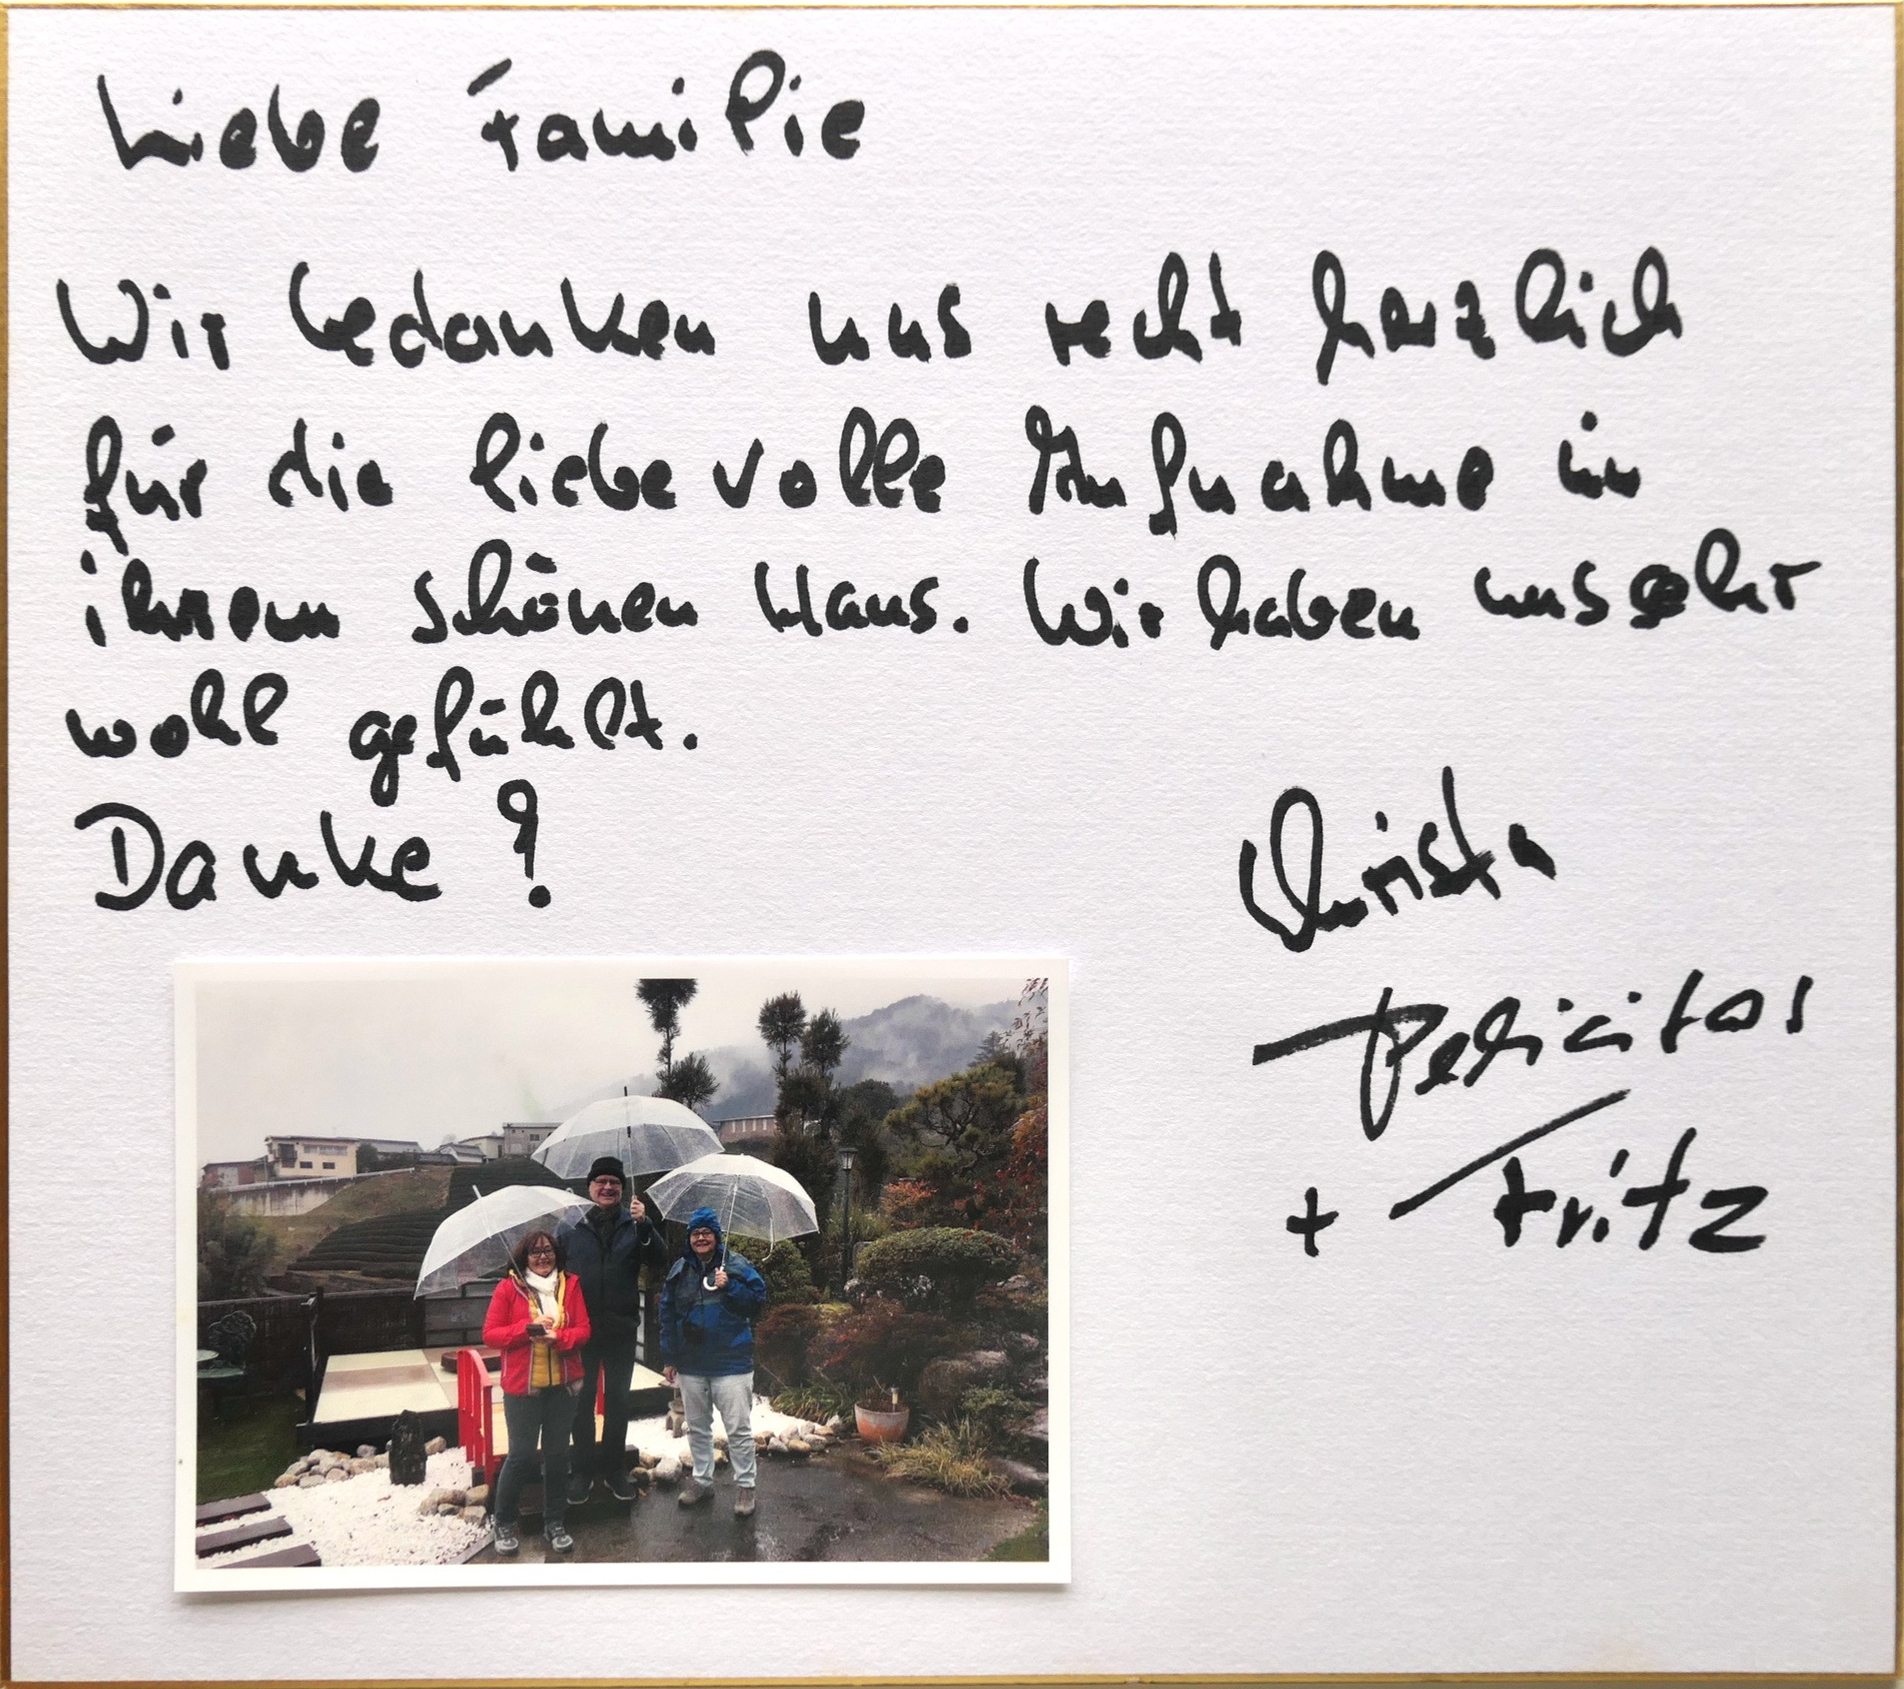 Liebe Familie
Wir bedanken uns recht herzlich
für die liebevolle Aufnahme in
ihrem schönen Haus. Wir haben uns sehr
wohl gefühlt.
Danke!
Christa
Felicitas
+ Fritz